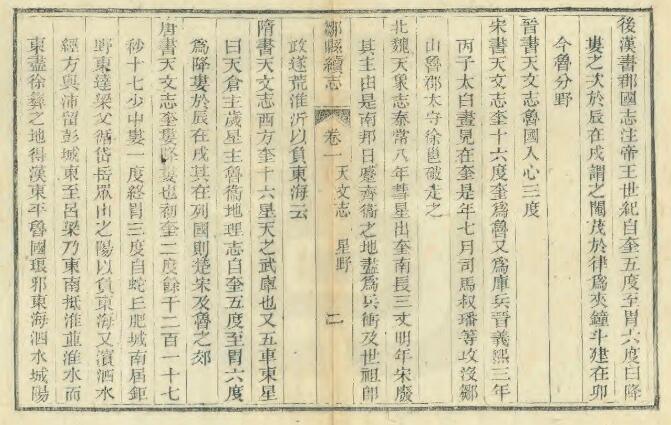 後漢書郡國志注帝王世紀自奎五度至胃六度曰降
婁之次於辰在戌謂之閹茂於律爲夾鐘斗建在卯
今魯分野
晉書天文志魯國入心三度
宋書天文志奎十六度奎爲魯又爲庫兵晉義熙三年
丙子太白晝見在奎是年七月司馬叔璠等攻沒鄒
山魯郡太守徐邕破走之
北魏天象志泰常八年彗星出奎南長三丈明年宋廢
其主由是南邦日蹙齊衞之地盡爲兵衝及世祖卽
鄒縣續志
卷一
天文志
星野
二
政遂荒淮沂以負東海云
隋書天文志西方奎十六星天之武庫也又五車東星
曰天倉主歲星主魯衞地理志自奎五度至胃六度
爲降婁於辰在戌其在列國則楚宋及魯之郊
唐書天文志奎婁降婁也初奎二度餘千二百一十七
秒十七少中婁一度終胃三度自蛇丘肥城南屆鉅
野東達梁父循岱岳眾山之陽以負東海又濱泗水
經方與沛留彭城東至呂梁乃東南抵淮並淮水而
東盡徐彝之地得漢東平魯國琅邪東海泗水城陽